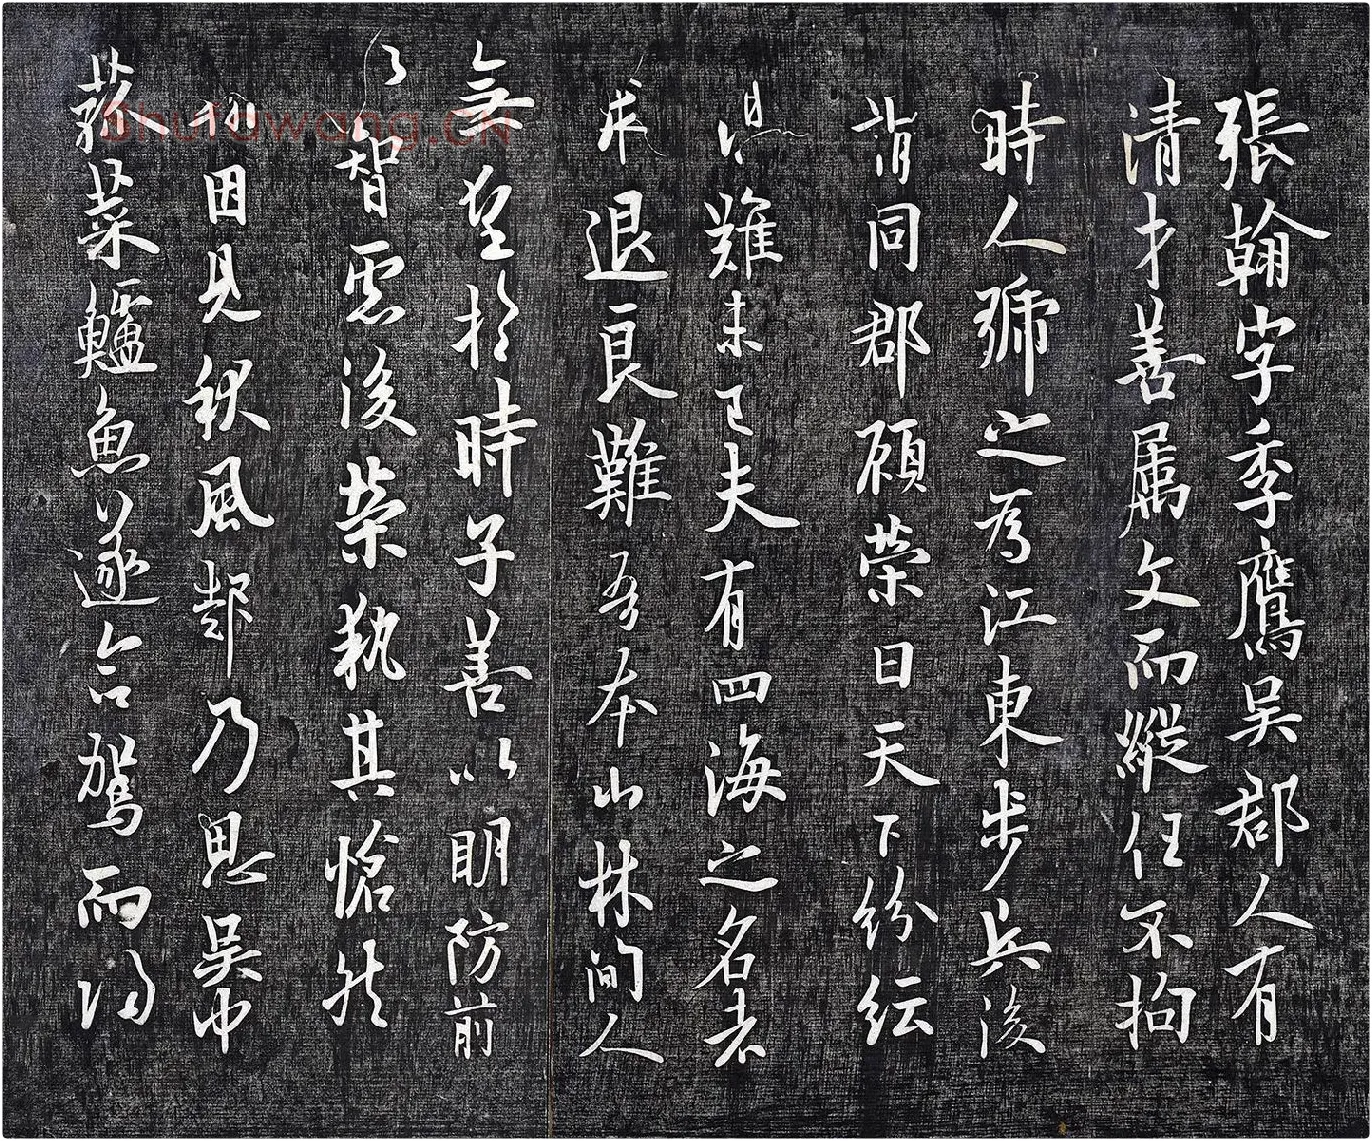 張翰字季鷹吳郡人有
清才善属文而縱任不拘
時人號之為江東步兵後
謂同郡顧榮曰天下紛紜
難未已夫有四海之名者
求退良難吾本山林間人
無望於時子善以明防前
以智慮後榮執其愴然
因見秋風起乃思吳中
菰菜鱸魚遂命駕而歸
Shufawang.CN